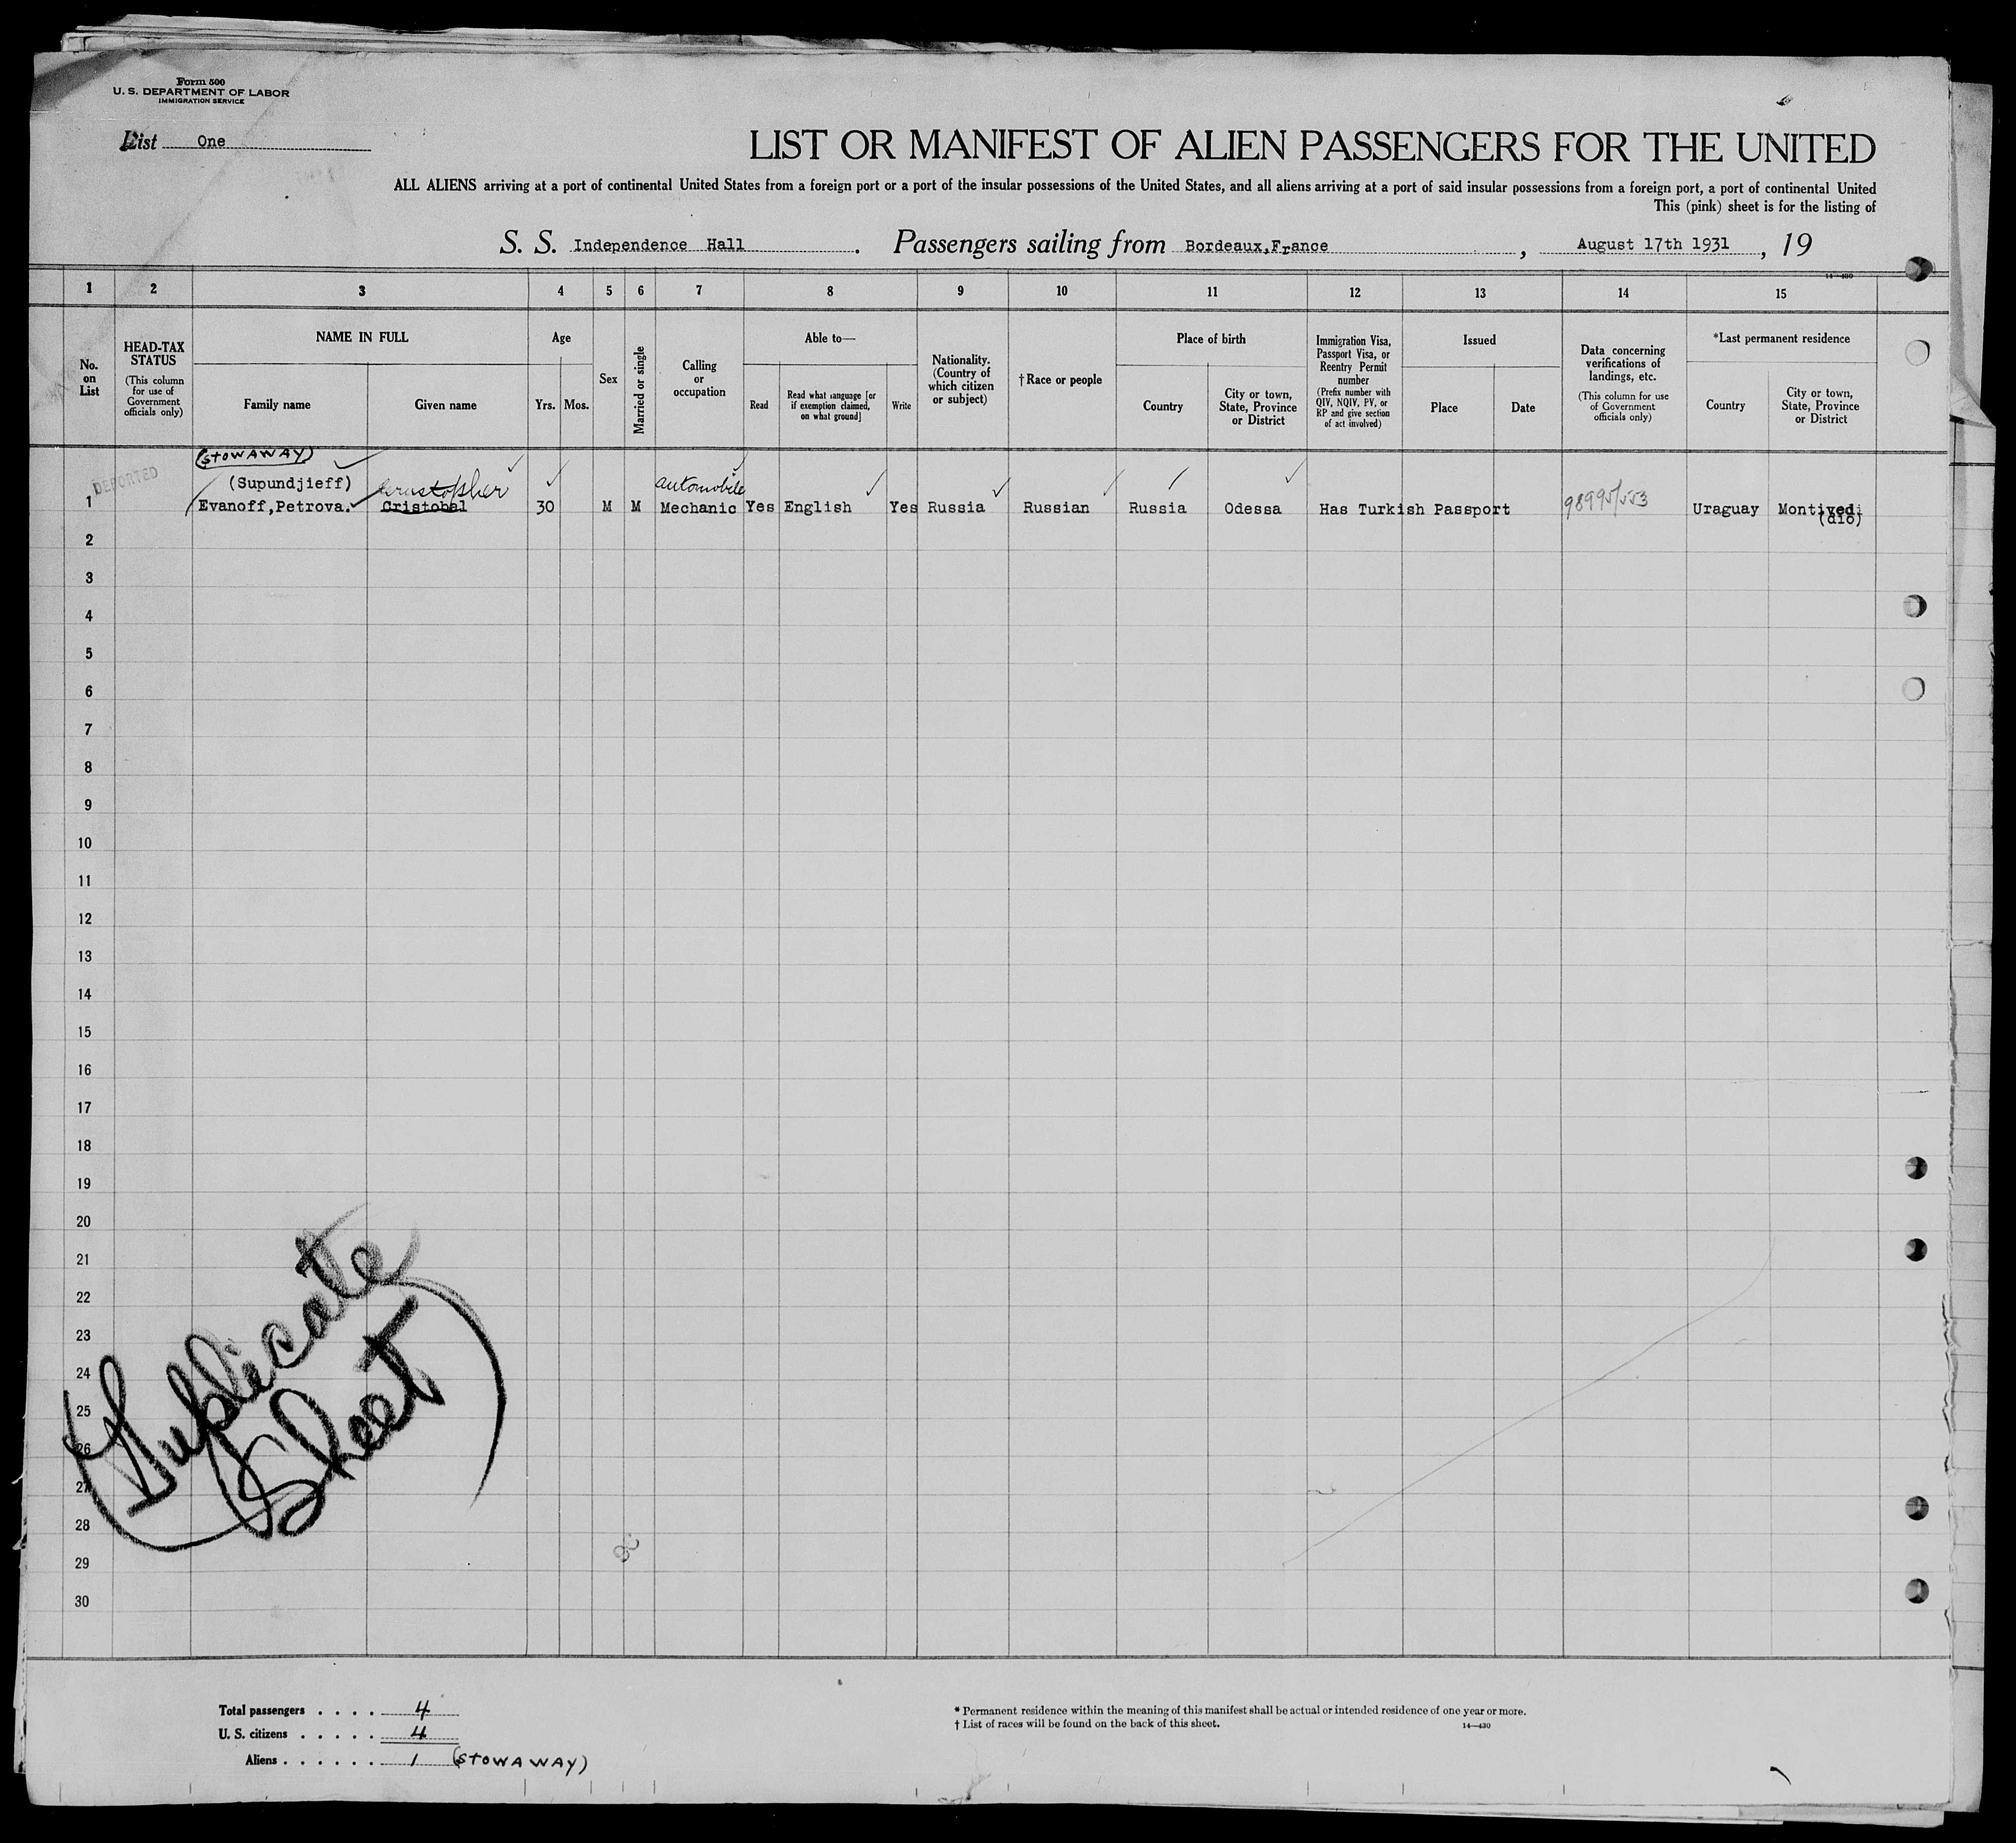 Form 500
U. S. DEPARTMENT OF LABOR
IMMIGRATION SERVICE
List One
LIST OR MANIFEST OF ALIEN PASSENGERS FOR THE UNITED
ALL ALIENS arriving at a port of continental United States from a foreign port or a port of the insular possessions of the United States, and all aliens arriving at a port of said insular possessions from a foreign port, a port of continental United
This (pink) sheet is for the listing of
S. S. Independence Hall. Passengers sailing from Bordeaux,France, August 17th 1931, 19
14-430
1 2 3 4 5 6 7 8 9 10 11 12 13 14 15
No. on List
HEAD-TAX STATUS
(This column for use of Government officials only)
NAME IN FULL
Family name
Given name
Age
Yrs. Mos.
Sex
Married or single
Calling or occupation
Able to—
Read
Read what language [or if exemption claimed, on what ground]
Write
Nationality. (Country of which citizen or subject)
†Race or people
Place of birth
Country
City or town, State, Province or District
Immigration Visa, Passport Visa, or Reentry Permit number
(Prefix number with QIV, NQIV, PV, or RP and give section of act involved)
Issued
Place
Date
Data concerning verifications of landings, etc.
(This column for use of Government officials only)
*Last permanent residence
Country
City or town, State, Province or District
(STOWAWAY)
DEPORTED
(Supundjieff) automobile
1 Evanoff,Petrova. Cristobal 30 M M Mechanic Yes English Yes Russia Russian Russia Odessa Has Turkish Passport Uraguay Montivedi
(dio)
2
3
4
5
6
7
8
9
10
11
12
13
14
15
16
17
18
19
20
21
22
23
24
25
26
27
28
29
30
Duplicate
Sheet
Total passengers . . . . 4
U. S. citizens . . . . . 4
Aliens . . . . . . 1 (STOWAWAY)
* Permanent residence within the meaning of this manifest shall be actual or intended residence of one year or more.
† List of races will be found on the back of this sheet. 14—430